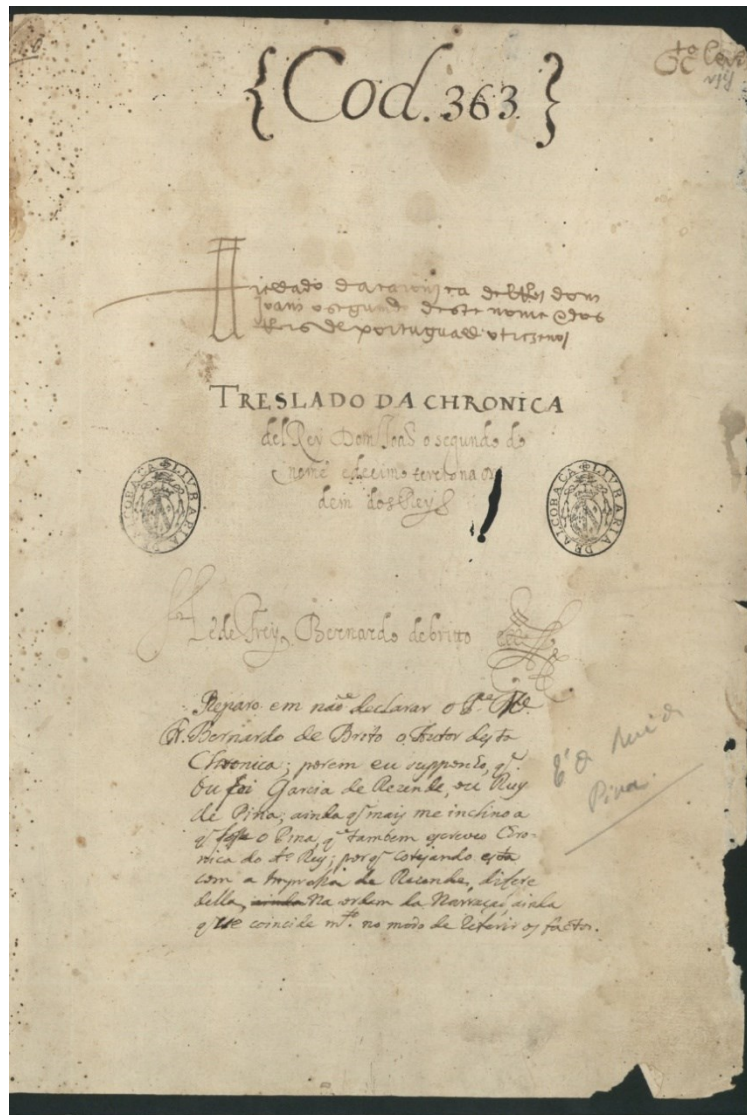 {Cod. 363.}
Treslado da caronica delRej dom
Joam o segundo deste nome e dos
Reis de portugual o trezeno
TRESLADO DA CHRONICA
del Rey Dom Joaõ o segundo do
nome e decimo terc na or
dem dos Reys
LIVRARIA DE ALCOBAÇA
LIVRARIA DE ALCOBAÇA
He de Frey Bernardo de britto
Reparo em não declarar o P.e
Fr. Bernardo de Brito o Autor desta
Chronica; porem eu supponho, q.
ou foi Garcia de Rezende, ou Ruy
de Pina; ainda q mais me inclino a
q fosse o Pina, q tambem escreveo Chro-
nica do d.o Rey; porq cotejando esta
com a Impressa de Rezende, difere
della, ainda na ordem da Narração ainda
q coincide m.to no modo de referir os factos.
É de Rui de
Pina.